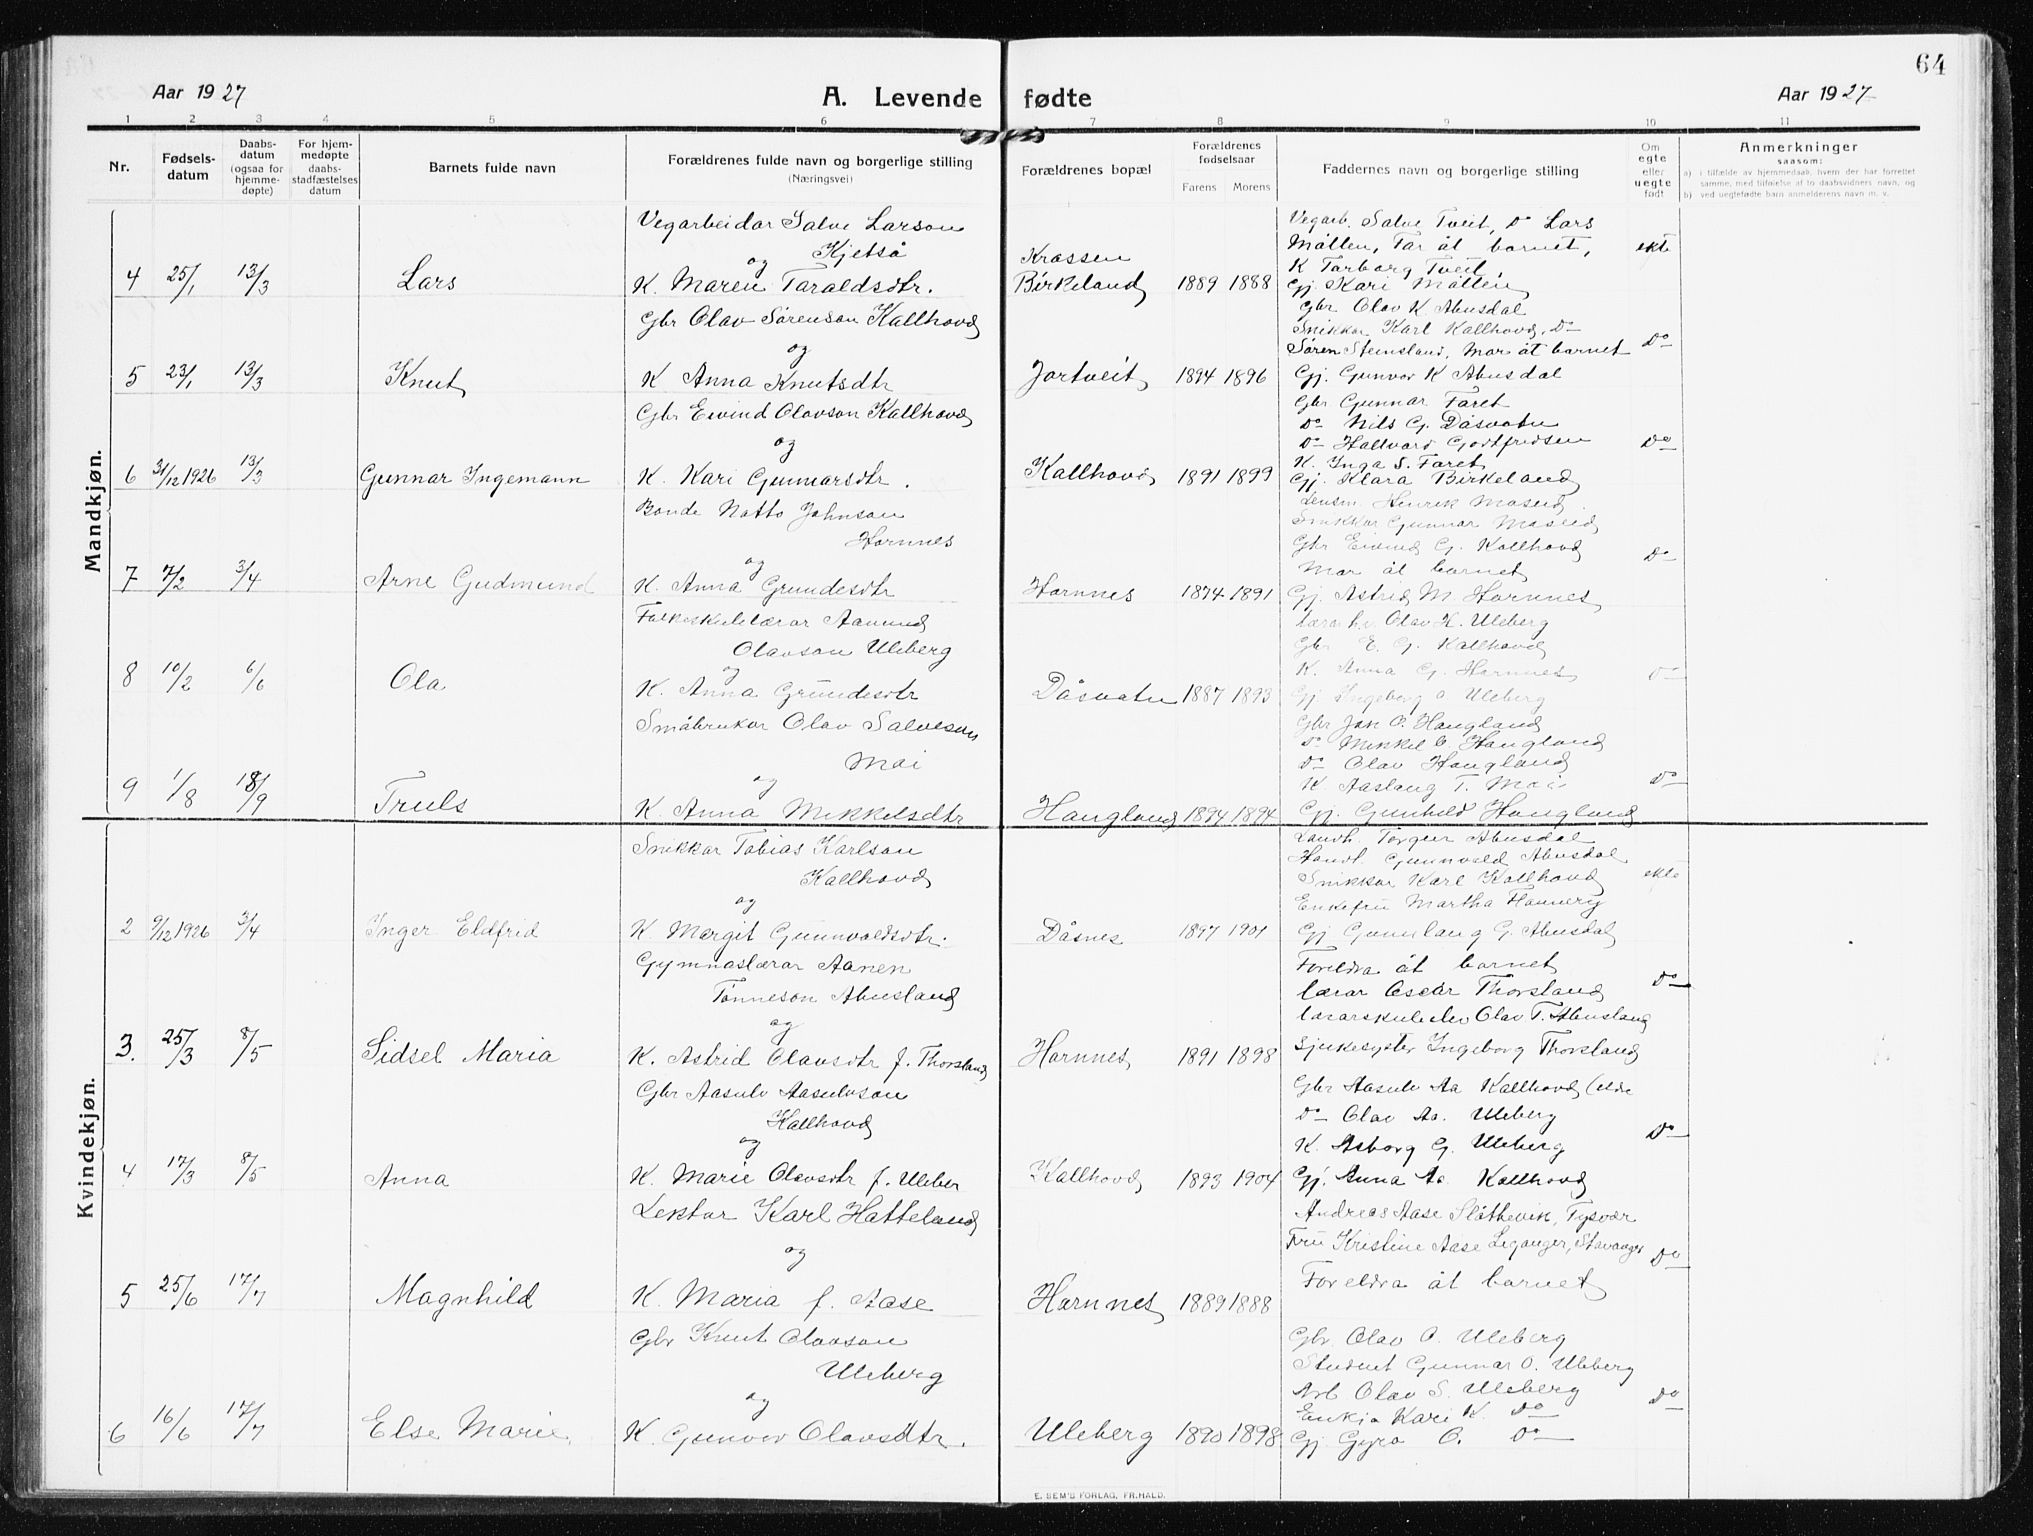 64
Aar 1927
A. Levende fødte
Aar 1927
1 2 3 4 5 6 7 8 9 10 11
Nr.
Fødselsdatum
Daabsdatum (ogsaa for hjemmedøpte)
For hjemmedøpte daabsstadfæstelses datum
Barnets fulde navn
Forældrenes fulde navn og borgerlige stilling
(Næringsvei)
Forældrenes bopæl
Forældrenes fødselsaar
Farens Morens
Faddernes navn og borgerlige stilling
Om egte eller uegte født
Anmerkninger
saasom:
a) i tilfælde av hjemmedaab, hvem der har forrettet samme, med tilføielse af to daabsvidners navn, og
b) ved uegtefødte barn anmelderens navn m. v.
Mandkjøn.
4 25/1 13/3 Lars
Vegarbeidar Salve Larson
Kjetså
og
K. Maren Taraldsdtr.
Krossen
Birkeland 1889 1888
Vegarb. Salve Tveit, Do Lars
Mållen, Far åt barnet,
K Tarborg Tveit,
Gj. Kari Mållen
ekte
5 23/1 13/3 Knut
Gbr Olav Sørenson Kallhovd
og
K Anna Knutsdtr
Jortveit 1894 1896
Gbr Olav K. Abusdal
Snikkar Karl Kallhovd, Do
Søren Steinsland, Mor åt barnet
Gj. Gunvor K Abusdal
Do
6 31/12 1926 13/3 Gunnar Ingemann
Gbr Eivind Olavson Kallhovd
og
K. Kari Gunnarsdtr.
Kallhovd 1891 1899
Gbr Gunnar Faret
Do Nils G. Dåsvatn
Do Hallvard Godtfredsen
K. Inga S. Faret
Gj. Klara Birkeland
Do
7 7/2 3/4 Arne Gudmund
Bonde Notto Johnson
Hornnes
og
K. Anna Grundesdtr
Hornnes 1874 1891
Lensm. Henrik Moseid
Snikkar Gunnar Moseid
Gbr Eivind G. Kallhovd
Mor åt barnet
Gj. Astrid M. Hornnes
Do
8 10/2 6/6 Ola
Folkeskulelærar Aanund
Olavson Uleberg
og
K. Anna Grundesdtr
Dåsvatn 1887 1893
Lærar Olav K. Uleberg
Gbr E. G. Kallhovd
K. Anna G. Hornnes
Gj. Ingeborg O Uleberg
Do
9 1/8 18/9 Truls
Småbrukar Olav Salveson
Moi
og
K. Anna Mikkelsdtr
Haugland 1894 1894
Gbr Jon O. Haugland
Do Mikkel O Haugland
Do Olav Haugland
K. Aaslaug T. Moi
Gj. Gunhild Haugland
Do
Kvindekjøn.
2 9/12 1926 3/4 Inger Eldfrid
Snikkar Tobias Karlson
Kallhovd
og
K Margit Gunnvaldsdtr.
Dåsnes 1897 1901
Landh. Torgeir Abusdal
Handl. Gunnvald Abusdal
Snikkar Karl Kallhovd
Enkefru Martha Flannery
Gj Gunnlaug G. Abusdal
ekte
3. 25/3 8/5 Sidsel Maria
Gymnaslærar Aanen
Tønneson Abusland
og
K. Astrid Olavsdtr f. Thorsland
Hornnes 1891 1898
Foreldra åt barnet
Lærar Oscar Thorsland
Lærarskuleelev Olav T. Abusland
Sjukesyster Ingeborg Thorsland
Do
4 17/3 8/5 Anna
Gbr Aasulv Aasulvson
Kallhovd
og
K. Marie Olavsdtr f. Uleber
Kallhovd 1893 1904
Gbr Aasulv Aa Kallhovd (elde
Do Olav Aa. Uleberg
K. Asborg G. Uleberg
Gj. Anna Aa Kallhovd
Do
5 25/6 17/7 Magnhild
Lektor Karl Hatteland
og
K. Maria f. Aase
Hornnes 1889 1888
Andreas Aase Slåttevik, Tysvær
Fru Kristine Aase Leganger, Stavanger
Foreldra åt barnet
Do
6 16/6 17/7 Else Marie
Gbr Knut Olavson
Uleberg
og
K. Gunvor Olavsdtr.
Uleberg 1890 1898
Gbr. Olav O. Uleberg
Student Gunnar O. Uleberg
Arb. Olav S. Uleberg
Enkja Kari K. Do
Gj Gyro O. Do
Do
E. SEM'S FORLAG, FR.HALD.